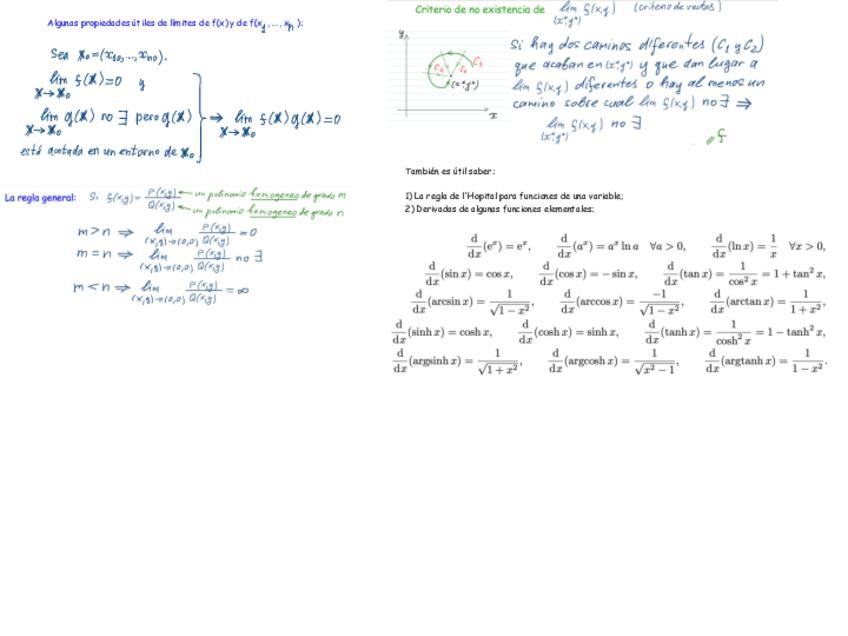 Algunas propiedades útiles de límites de f(x) y de f(x₁, ..., xₙ):
Sea x₀=(x₁₀,...,xₙ₀).
lim f(x)=0 y
x→x₀
lim g(x) no ∃ pero g(x) ⇒ lim f(x)g(x)=0
x→x₀ x→x₀
está acotada en un entorno de x₀
La regla general: Si f(x,y)= P(x,y)/Q(x,y) ← un polinomio homogeneo de grado m
← un polinomio homogeneo de grado n
m>n ⇒ lim P(x,y)/Q(x,y) =0
(x,y)→(0,0)
m=n ⇒ lim P(x,y)/Q(x,y) no ∃
(x,y)→(0,0)
m<n ⇒ lim P(x,y)/Q(x,y) =∞
(x,y)→(0,0)
Criterio de no existencia de lim f(x,y) (criterio de )
(x*,y*)
y
C₂ C₁ C₃
(x*,y*)
x
Si hay dos caminos diferentes (C₁ y C₂)
que acaban en (x*,y*) y que dan lugar a
lim f(x,y) diferentes o hay al menos un
camino sobre cual lim f(x,y) no ∃ ⇒
lim f(x,y) no ∃.
(x*,y*)
También es útil saber:
1) La regla de l'Hopital para funciones de una variable;
2) Derivadas de algunas funciones elementales:
d/dx (eˣ) = eˣ, d/dx (aˣ) = aˣ ln a ∀a > 0, d/dx (ln x) = 1/x ∀x > 0,
d/dx (sin x) = cos x, d/dx (cos x) = − sin x, d/dx (tan x) = 1/cos² x = 1 + tan² x,
d/dx (arcsin x) = 1/√(1 − x²), d/dx (arccos x) = −1/√(1 − x²), d/dx (arctan x) = 1/(1 + x²),
d/dx (sinh x) = cosh x, d/dx (cosh x) = sinh x, d/dx (tanh x) = 1/cosh² x = 1 − tanh² x,
d/dx (argsinh x) = 1/√(1 + x²), d/dx (argcosh x) = 1/√(x² − 1), d/dx (argtanh x) = 1/(1 − x²).